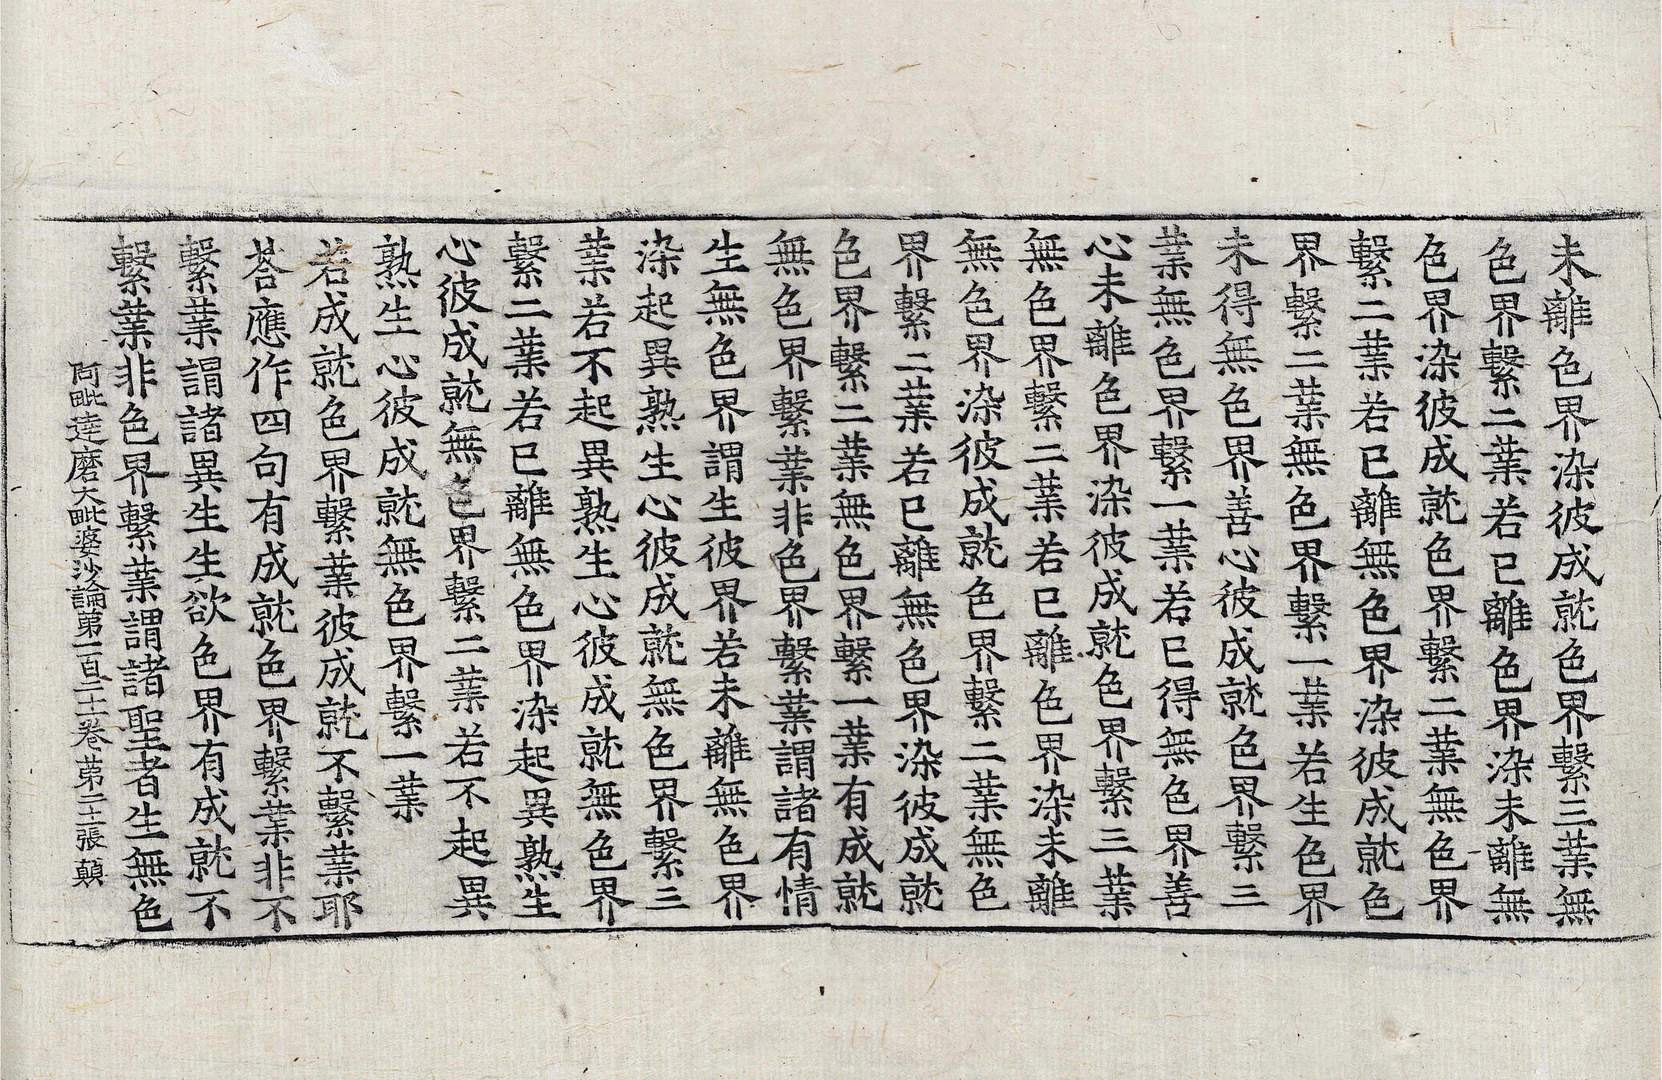 未離色界染彼成就色界繫三業無
色界繫二業若已離色界染未離無
色界染彼成就色界繫二業無色界
繫二業若已離無色界染彼成就色
界繫二業無色界繫一業若生色界
未得無色界善心彼成就色界繫三
業無色界繫一業若已得無色界善
心未離色界染彼成就色界繫三業
無色界繫二業若已離色界染未離
無色界染彼成就色界繫二業無色
界繫二業若已離無色界染彼成就
色界繫二業無色界繫一業有成就
無色界繫業非色界繫業謂諸有情
生無色界謂生彼界若未離無色界
染起異熟生心彼成就無色界繫三
業若不起異熟生心彼成就無色界
繫二業若已離無色界染起異熟生
心彼成就無色界繫二業若不起異
熟生心彼成就無色界繫一業
若成就色界繫業彼成就不繫業耶
荅應作四句有成就色界繫業非不
繫業謂諸異生生欲色界有成就不
繫業非色界繫業謂諸聖者生無色
阿毗達磨大毗婆沙論第一百二十卷 第二十張 顛